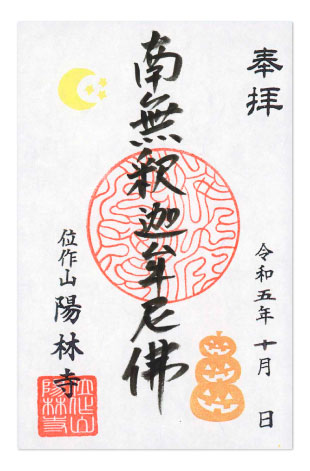 奉拝
令和五年十月 日
南無釈迦牟尼佛
位作山 陽林寺
位作山
陽林寺